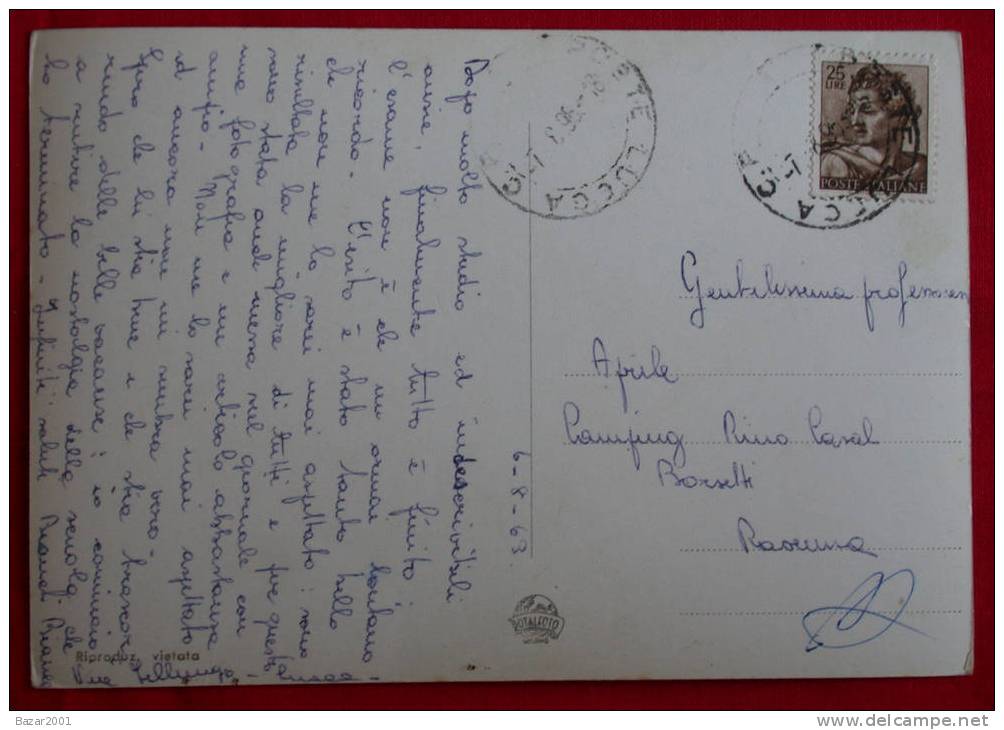 Dopo molto studio ed indescrivibili
ansie, finalmente tutto è finito:
l'esame non è che un ormai lontano
ricordo. L'esito è stato tanto bello
che non me lo sarei mai aspettato: sono
risultata la migliore di tutti e per questo
sono stata anche messa nel giornale con
una fotografia e un articolo abbastanza
ampio - Non me lo sarei mai aspettato
ed ancora non mi sembra vero -
Spero che lei stia bene e che stia trascor
rendo delle belle vacanze; io comincio
a sentire la nostalgia della scuola che
ho terminato - Infiniti saluti
6-8-63
Gentilissima professoressa
Aprile
Camping Pino Casal
Borsetti
Ravenna
25
LIRE
POSTE ITALIANE
POSTE LUCCA
LUCCA
ROTALFOTO
Riproduz. vietata
Bazar2001
delcampe.net